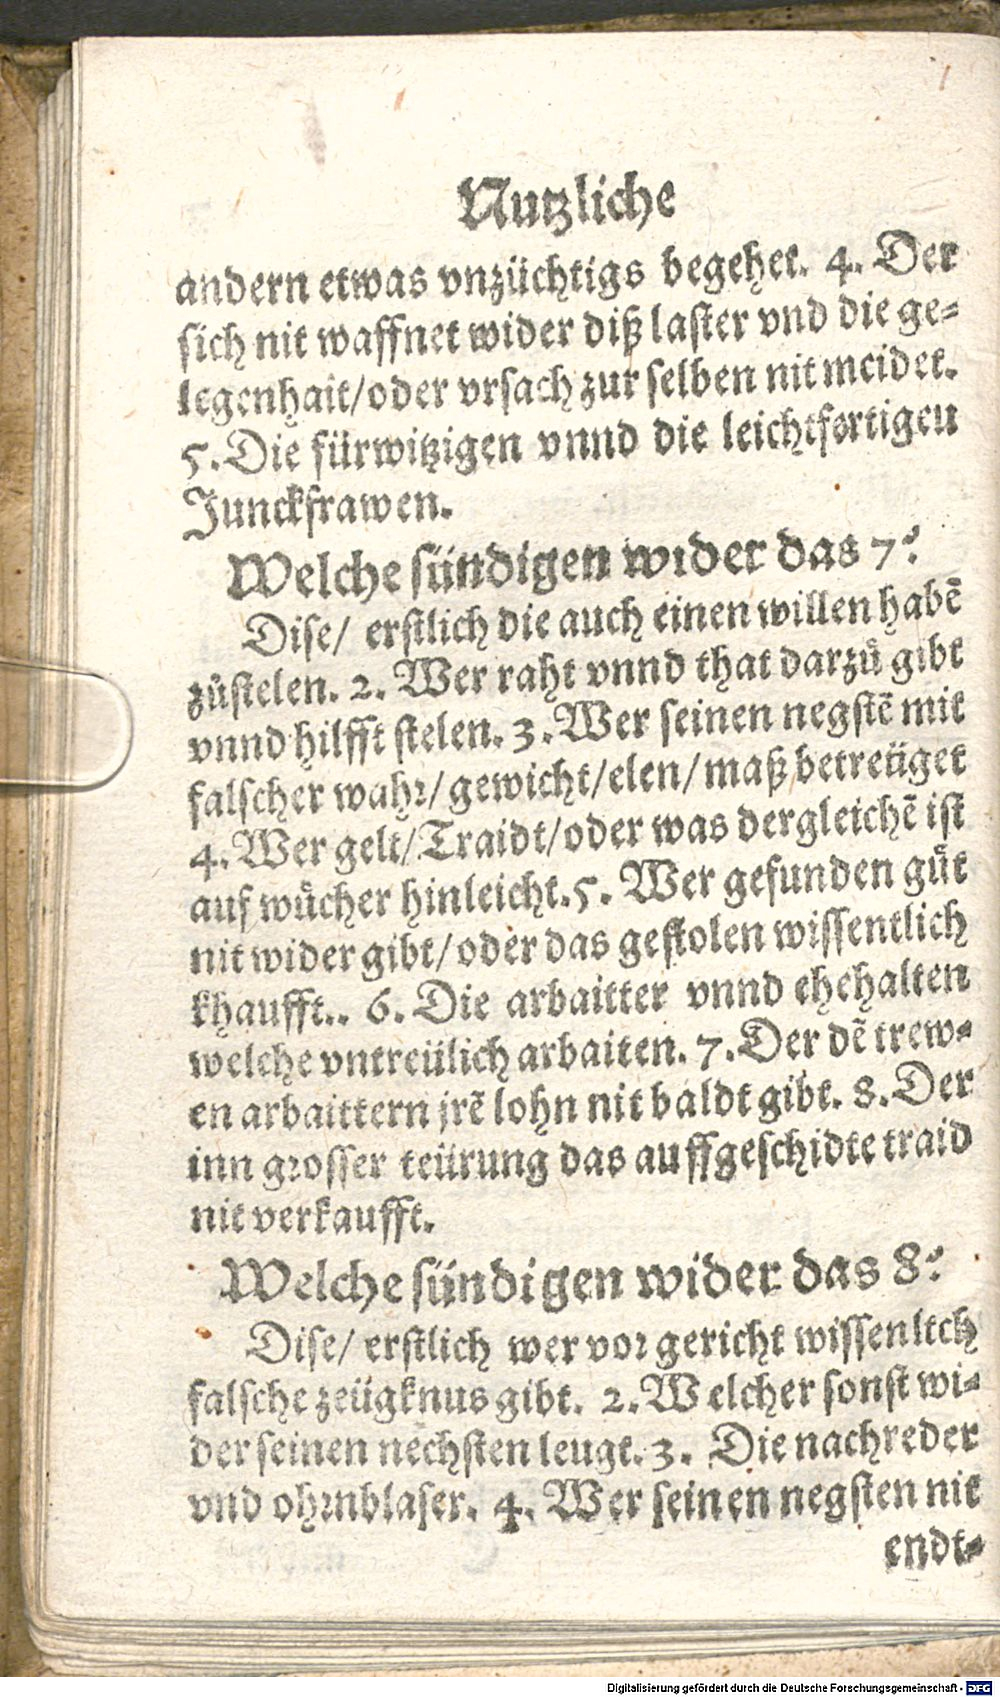 Nutzliche
andern etwas vnzüchtigs begehet. 4. Der
sich nit waffnet wider diß laster vnd die ge-
legenhait/oder vrsach zur selben nit meidet.
5. Die fürwitzigen vnnd die leichtfertigen
Junckfrawen.
Welche sündigen wider das 7.
Dise/ erstlich die auch einen willen habē
zůstelen. 2. Wer raht vnnd that darzů gibt
vnnd hilfft stelen. 3. Wer seinen negstē mit
falscher wahr/gewicht/elen/maß betreüget
4. Wer gelt/Traidt/oder was dergleichē ist
auf wůcher hinleicht. 5. Wer gefunden gůt
nit wider gibt/oder das gestolen wissentlich
khaufft.. 6. Die arbaitter vnnd ehehalten
welche vntreülich arbaiten. 7. Der dē trew-
en arbaittern jrē lohn nit baldt gibt. 8. Der
inn grosser teürung das auffgeschidte traid
nit verkaufft.
Welche sündigen wider das 8.
Dise/ erstlich wer vor gericht wissenltch
falsche zeügknus gibt. 2. Welcher sonst wi-
der seinen nechsten leugt. 3. Die nachreder
vnd ohrnblaser. 4. Wer seinen negsten nit
endt-
Digitalisierung gefördert durch die Deutsche Forschungsgemeinschaft - DFG